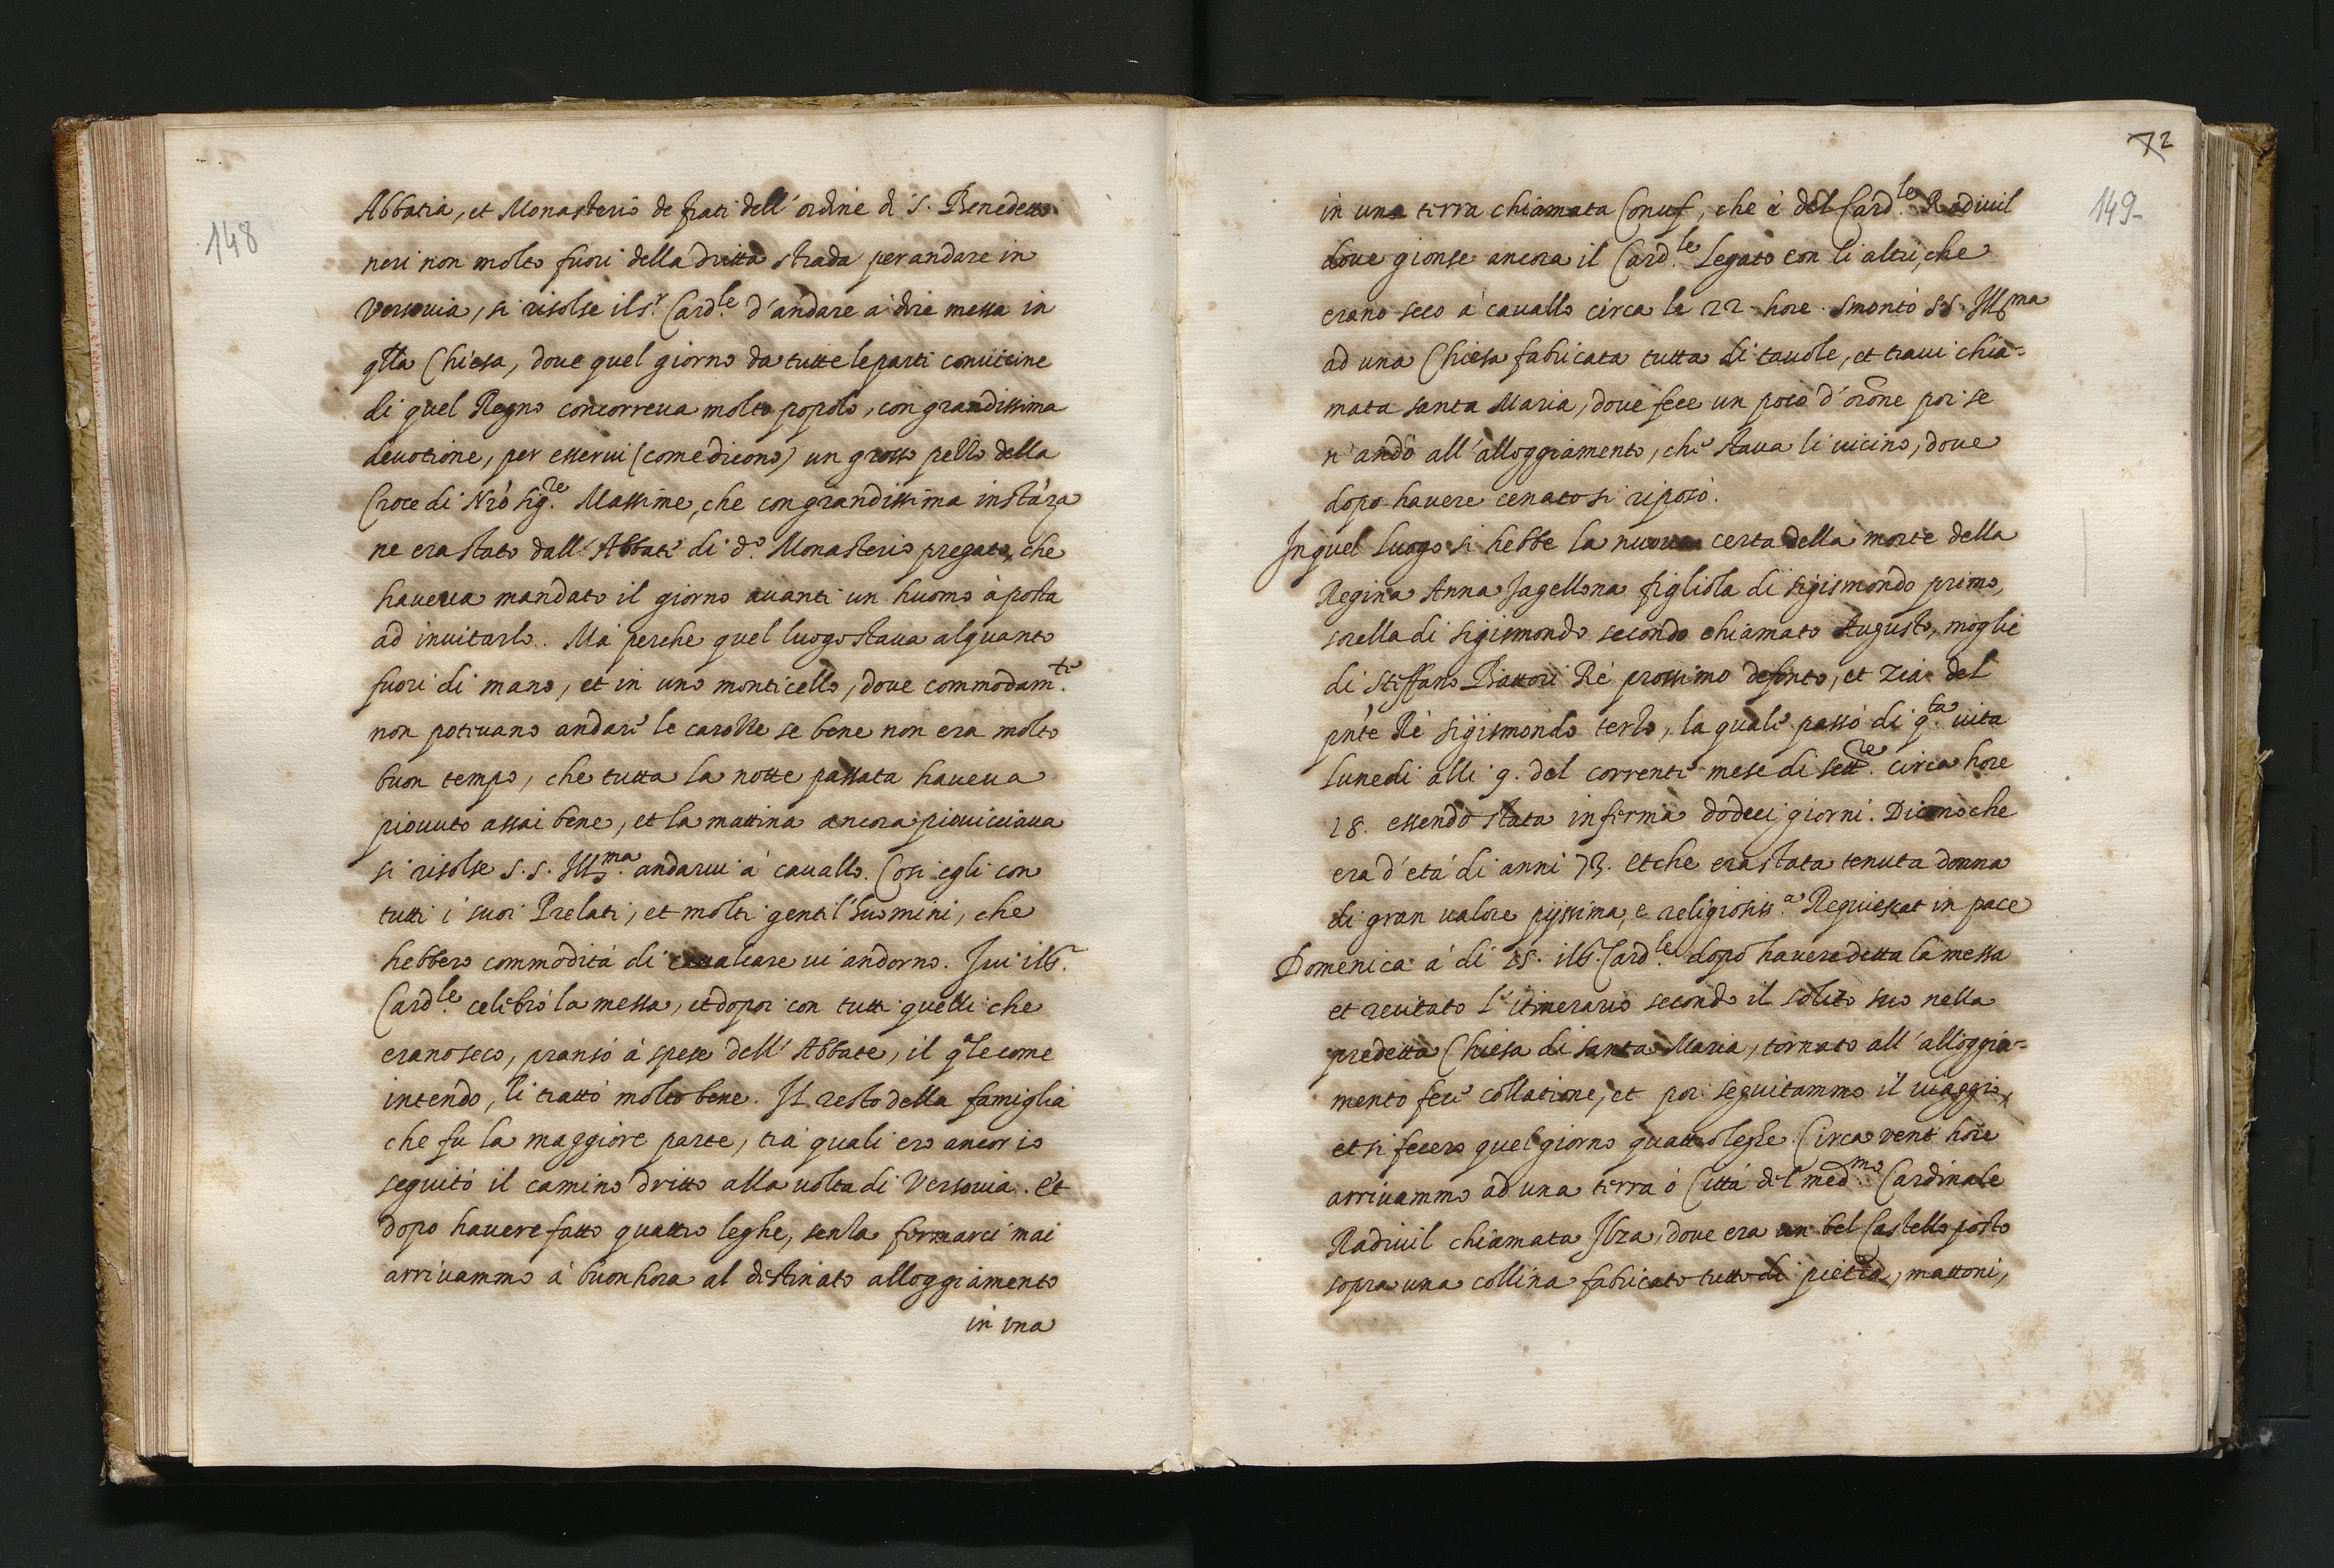 148
Abbatia, et Monasterio de frati dell'ordine di S. Benedetto
neri non molto fuori della dritta strada per andare in
Versovia, si risolse il sr. Card.le d'andare à dire messa in
qlla Chiesa, dove quel giorno da tutte le parti convicine
di quel Regno concorreva molto popolo, con grandissima
devotione, per esservi (come dicono) un grosso pezzo della
Croce di Nrō sig.re Massime, che con grandissima instāza
ne era stato dall'Abbate di d.o Monasterio pregato, che
haveva mandato il giorno avanti un huomo à posta
ad invitarlo. Mà perche quel luogo stava alquanto
fuori di mano, et in uno monticello, dove commodam.te
non potevano andare le carozze se bene non era molto
buon tempo, che tutta la notte passata haveva
piovuto assai bene, et la mattina ancora piovicciava
si risolse S. S. Ill.ma andarvi à cavallo. Cosi egli con
tutti i suoi Prelati, et molti gentil'huomini, che
hebbero commodità di cavalcare vi andorno. Ivi il sr.
Card.le celebrò la messa, et dopoi con tutti quelli che
erano seco, pransò à spese dell'Abbate, il qle come
intendo, li trattò molto bene. Il resto della famiglia
che fu la maggiore parte, trà quali ero ancor io
seguitò il camino dritto alla volta di Versovia. et
dopo havere fatto quattro leghe, senza fermarci mai
arrivammo à buon hora al destinato alloggiamento
in una
72
149
in una terra chiamata Conuf, che è del Card.le Radivil
dove gionse ancora il Card.le Legato con li altri, che
erano seco à cavallo circa le 22 hore. smontò SS. Ill.ma
ad una Chiesa fabricata tutta di tavole, et travi chia-
mata santa Maria, dove fece un poco d'orōne poi se
n'andò all'alloggiamento, che stava li vicino, dove
dopo havere cenato si riposò.
In quel luogo si hebbe la nuova certa della morte della
Regina Anna Jagellona figliola di sigismondo primo,
sorella di sigismondo secondo chiamato Augusto, moglie
di steffano Battori Rè prossimo defonto, et zia del
pnte Rè sigismondo terzo, la quale passò di q.ta vita
lunedi alli 9. del corrente mese di sett.re circa hore
18. essendo stata inferma dodeci giorni. Dicono che
era d'età di anni 73. et che era stata tenuta donna
di gran valore pijssima, e religiosiss.a Requiescat in pace
Domenica à di 15. il sr. Card.le dopò havere detta la messa
et recitato l'itinerario secondo il solito suo nella
predetta Chiesa di santa Maria, tornato all'alloggia-
mento fece collatione, et poi seguitammo il viaggio,
et si fecero quel giorno quattro leghe. Circa vent'hore
arrivammo ad una terra ò Città del med.mo Cardinale
Radivil chiamata Ilza, dove era un bel Castello posto
sopra una collina fabricato tutto di pietra, mattoni,